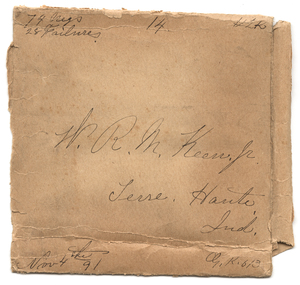 14.
28 Failures
W. R. M. Keen, Jr.
Terre. Haute,
Ind.
Nov 4th 91